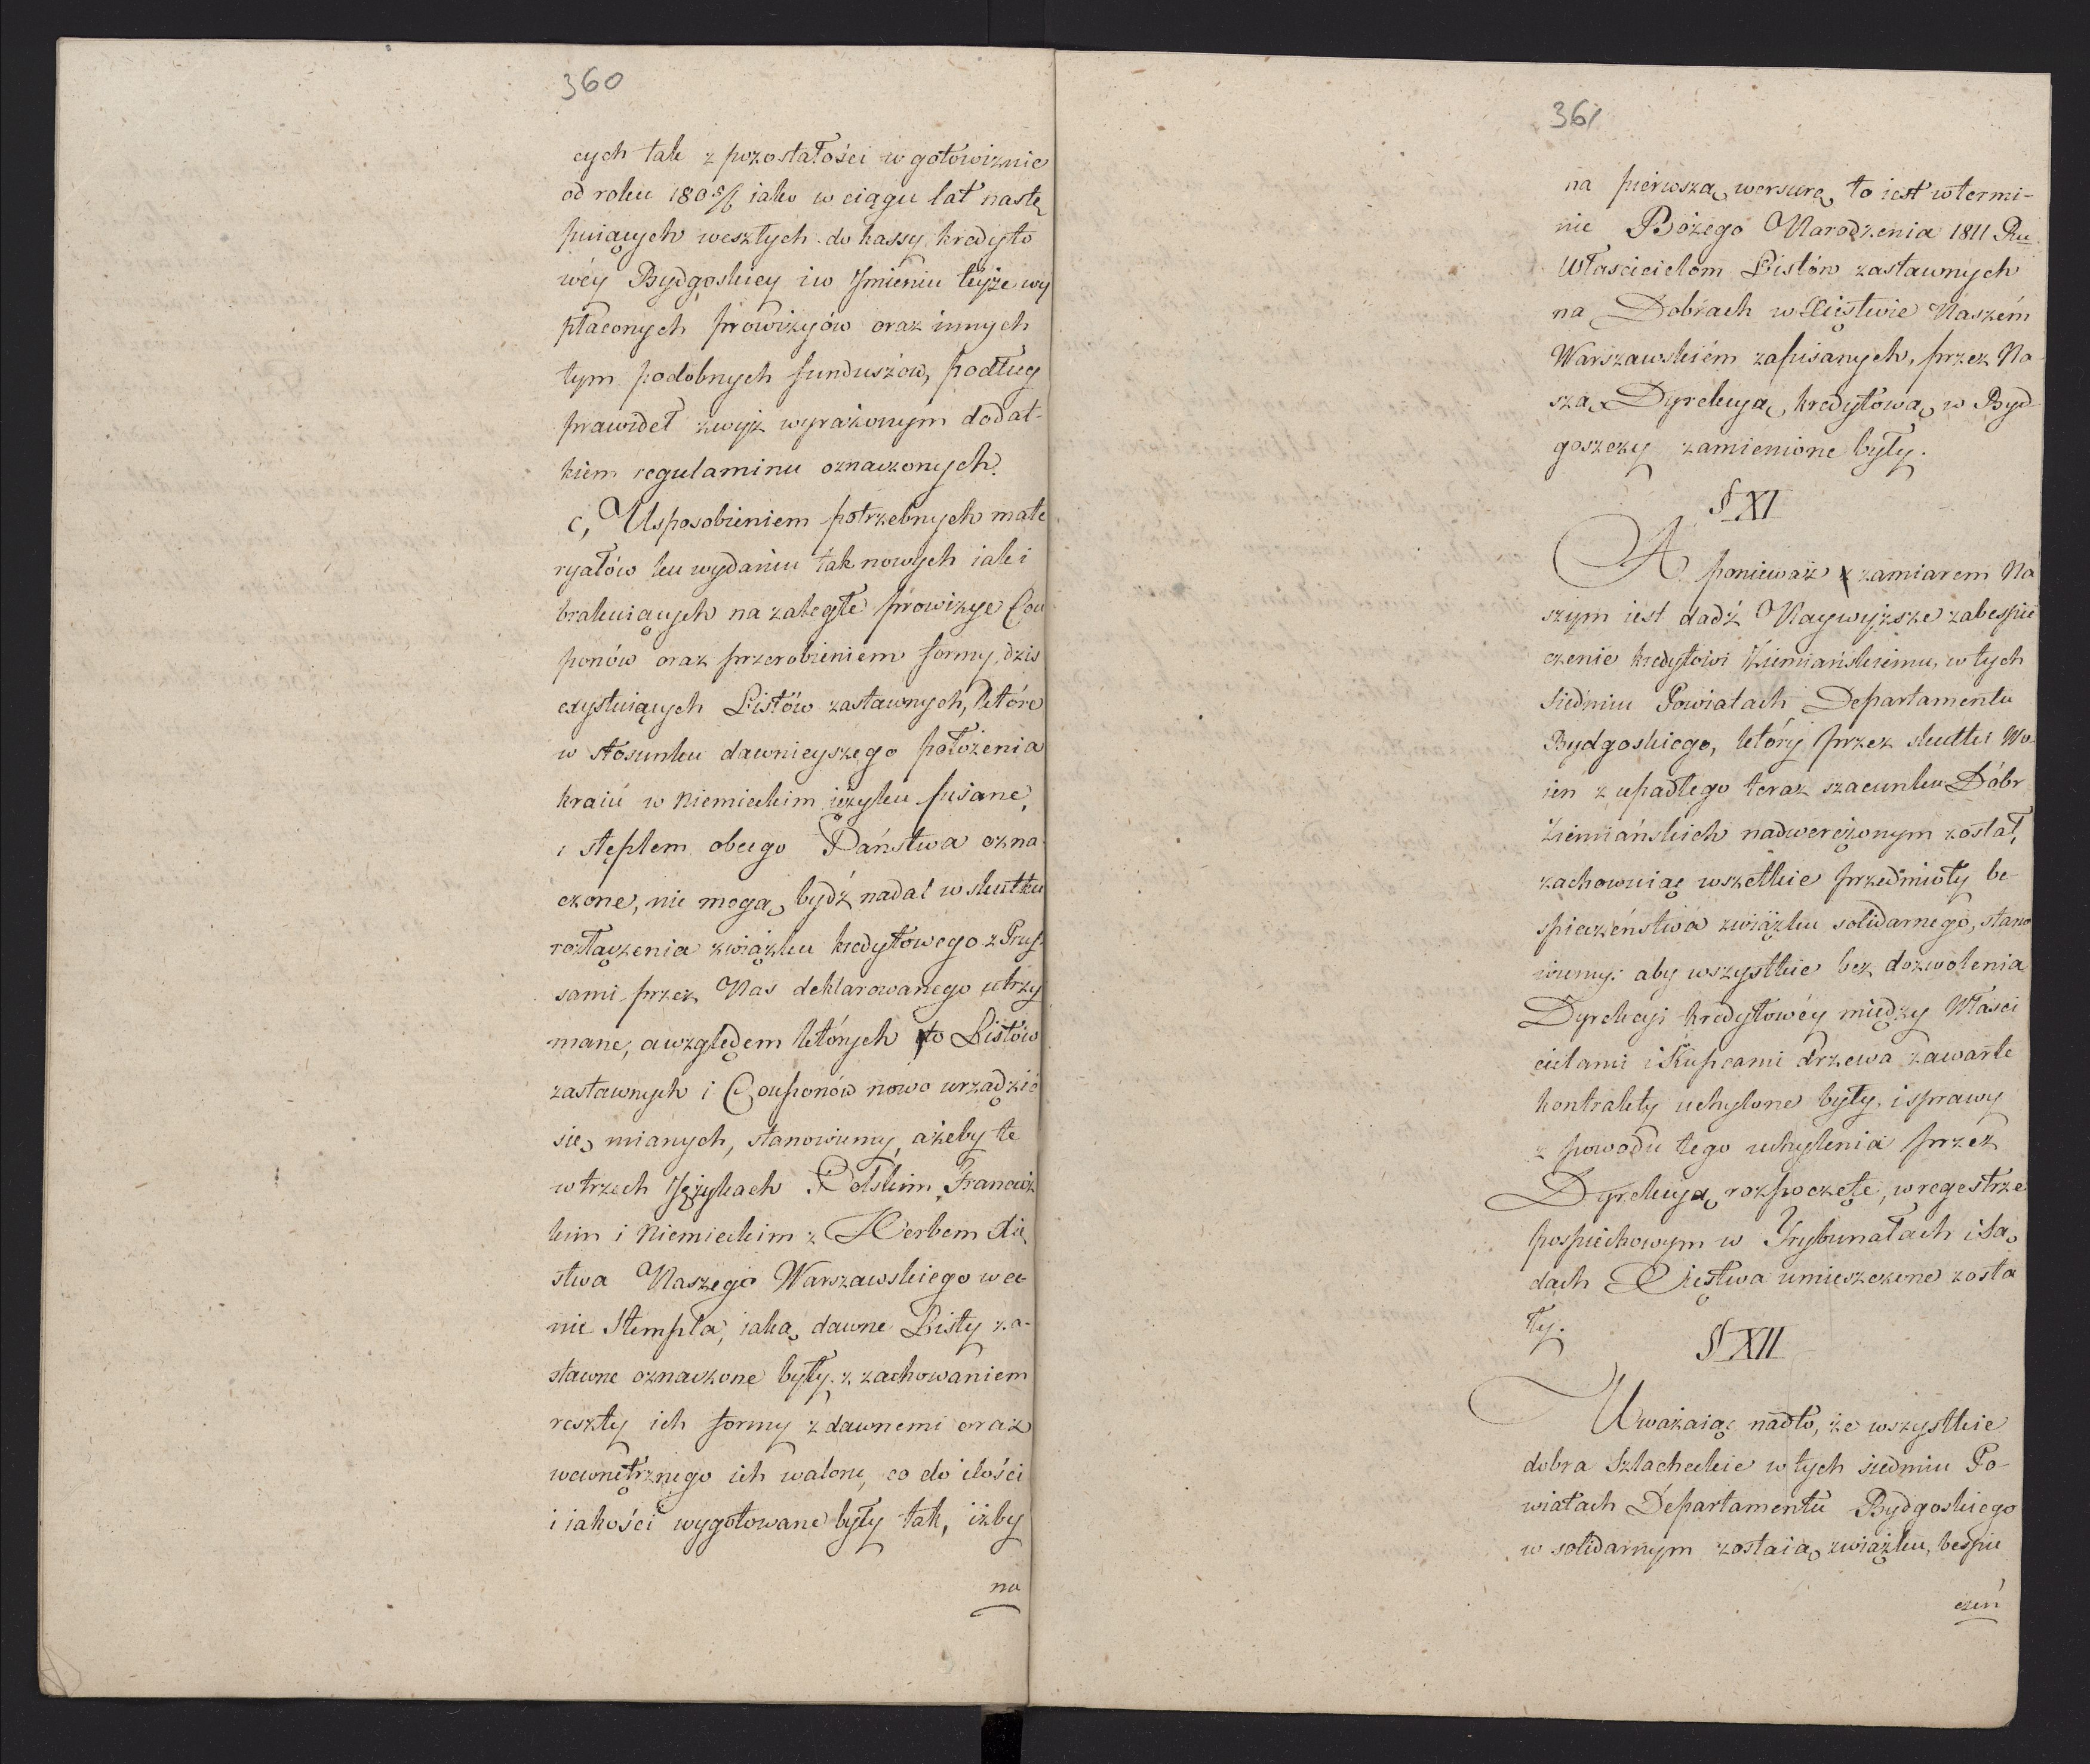 360
cych tak z pozostałości w gotowiznie
od roku 180 5/6 iako w ciągu lat nastę
puiących weszłych do kassy kredyto
wéy Bydgoskiey i w Jmieniu teyże wy
płaconych prowizyów oraz innych
tym podobnych funduszów, podług
prawideł zwyż wyrażonym dodat-
kiem regulaminu oznaczonych.
c, Usposobieniem potrzebnych mate
ryałów ku wydaniu tak nowych iak i
brakuiących na zaległe prowizye Cou
ponów oraz przerobieniem formy, dziś
exystuiących Listów zastawnych, które
w stosunku dawnieyszego położenia
kraiu w niemieckim ięzyku pisane,
i stęplem obcego Państwa ozna
czone, nie mogą bydź nadal w skutku
rozłączenia związku kredytowego z Prus
sami przez Nas deklarowanego utrzy
mane, a względem których to Listów
zastawnych i Couponów nowo urządzić
się mianych, stanowiemy, ażeby te
w trzech Językach Polskim, Francuz
kim i Niemieckim z Herbem Xię
stwa Naszego Warszawskiego w ce-
nie Stempla, iaką dawne Listy za-
stawne oznaczone były, z zachowaniem
reszty ich formy z dawnemi oraz
wewnętrznego ich waloru, co do ilości
i iakości wygotowane były tak, iżby
na
361
na pierwszą wersurę, to iest w termi-
nie Bożego Narodzenia 1811 Ru
Właścicielom Listów zastawnych
na Dobrach w Xięstwie Naszém
Warszawskiém zapisanych, przez Na
szą Dyrekcyą kredytową w Byd
goszczy zamienione były.
§ XI
A ponieważ zamiarem Na
szym iest dadź Naywyższe zabespie
czenie kredytowi Ziemiańskiemu, w tych
siedmiu Powiatach Departamentu
Bydgoskiego, który przez skutki Wo-
ien z upadłego teraz szacunku Dóbr
Ziemiańskich nadwerężonym został,
zachowuiąc wszelkie przedmioty be-
spieczeństwa związku solidarnego, stano
wiemy: aby wszystkie bez dozwolenia
Dyrekcyi kredytowéy między Właści
cielami i Kupcami drzewa zawarte
kontrakty uchylone były, i sprawy
z powodu tego uchylenia przez
Dyrekcyą rozpoczęte, w regestrze
pospiechowym w Trybunałach i Są
dach Xięstwa umieszczone zosta
ły.
§ XII
Uważaiąc nadto, że wszystkie
dobra Szlacheckie w tych siedmiu Po-
wiatach Departamentu Bydgoskiego
w solidarnym zostaią związku, bespie
czeń